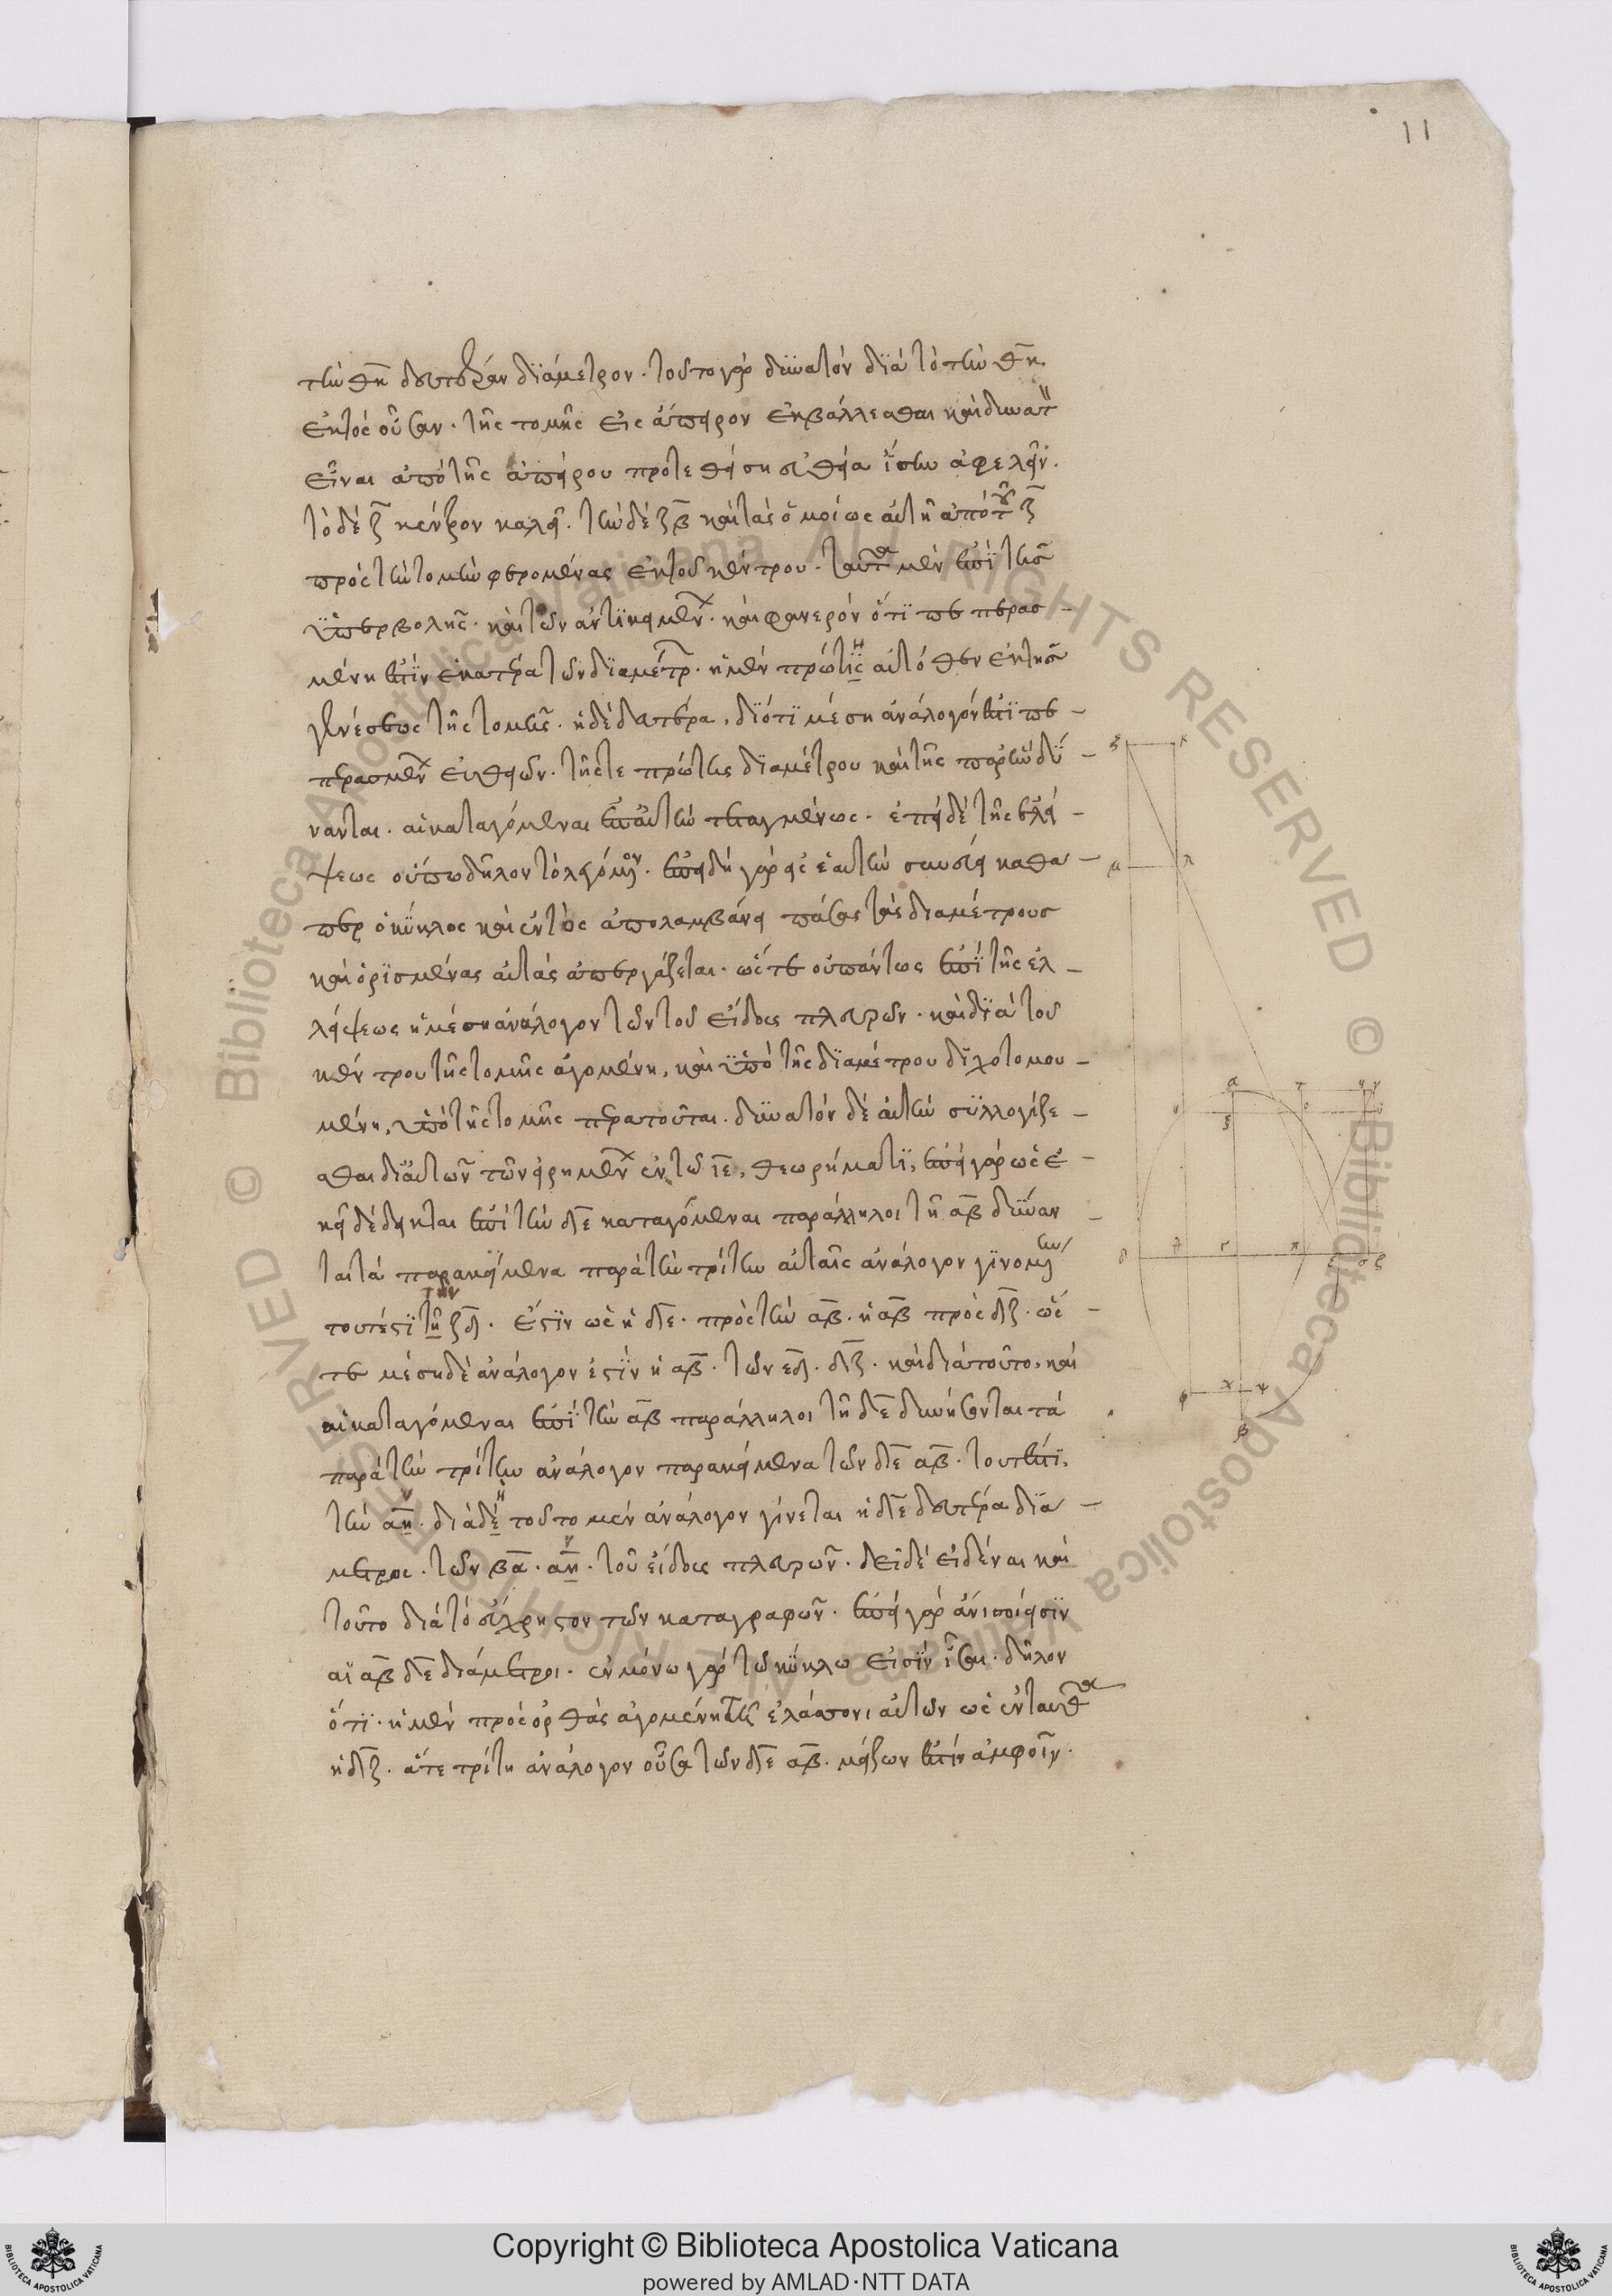 11
τὴν θη δευτέραν διάμετρον. τοῦτο γὰρ δυνατὸν διὰ τὸ τὴν θη
ἐκτὸς οὖσαν. τῆς τομῆς εἰς ἄπειρον ἐκβάλλεσθαι καὶ δυνατ
εἶναι ἀπὸ τῆς ἀπείρου προτεθείσῃ εὐθείᾳ ἴσην ἀφελεῖν.
τὸ δὲ ζ κέντρον καλεῖ. τὴν δὲ ζβ καὶ τὰς ὁμοίως αὐτῇ ἀπὸ τοῦ ζ
πρὸς τὴν τομὴν φερομένας ἐκ τοῦ κέντρου. ταῦτα μὲν ἐπὶ τῆς
ὑπερβολῆς. καὶ τῶν ἀντικειμέν. καὶ φανερὸν ὅτι πεπερασ –
μένη ἐστὶν ἑκατέρα τῶν διαμέτρ. ἡ μὲν πρώτη αὐτόθεν ἐκ τῆς
γενέσεως τῆς τομῆς. ἡ δὲ δευτέρα, διότι μέση ἀνάλογόν ἐστι πε –
περασμέν εὐθειῶν. τῆς τε πρώτης διαμέτρου καὶ τῆς παρ' ἣν δύ –
νανται. αἱ καταγόμεναι ἐπ' αὐτὴν τεταγμένως. ἐπεὶ δὲ τῆς ἐλλεί –
ψεως οὔπω δῆλον τὸ λεγόμενον. ἐπειδὴ γὰρ εἰς ἑαυτὴν συννεύει καθά –
περ ὁ κύκλος καὶ ἐντὸς ἀπολαμβάνει πάσας τὰς διαμέτρους
καὶ ὡρισμένας αὐτὰς ἀπεργάζεται. ὥστε οὐ πάντως ἐπὶ τῆς ἐλ –
λείψεως ἡ μέση ἀνάλογον τῶν τοῦ εἴδους πλευρῶν. καὶ διὰ τοῦ
κέντρου τῆς τομῆς ἀγομένη, καὶ ὑπὸ τῆς διαμέτρου διχοτομου –
μένη, ὑπὸ τῆς τομῆς περατοῦται. δυνατὸν δὲ αὐτὴν συλλογίζε –
σθαι δι' αὐτῶν τῶν εἰρημέν ἐν τῷ ιε, θεωρήματι, ἐπεὶ γὰρ ὡς ἐ –
κεῖ δέδεικται ἐπὶ τὴν δε καταγόμεναι παράλληλοι τῇ αβ δύναν –
ται τὰ παρακείμενα παρὰ τὴν τρίτην αὐταῖς ἀνάλογον γινομένην
τουτέστι τὴν ζδ. ἔστιν ὡς ἡ δε. πρὸς τὴν αβ. ἡ αβ πρὸς δζ. ὥσ –
τε μέση δὲ ἀνάλογον ἐστὶν ἡ αβ. τῶν εδ. δζ. καὶ διὰ τοῦτο, καὶ
αἱ καταγόμεναι ἐπὶ τὴν αβ παράλληλοι τῇ δε δυνήσονται τὰ
παρὰ τὴν τρίτην ἀνάλογον παρακείμενα τῶν δε αβ. τουτέστι,
τὴν αν. διὰ δὴ τοῦτο μέν ἀνάλογον γίνεται ἡ δε δευτέρα διά –
μετρος. τῶν βα. αν. τοῦ εἴδους πλευρῶν. δεῖ δὲ εἰδέναι καὶ
τοῦτο διὰ τὸ εὔχρηστον τῶν καταγραφῶν. ἐπεὶ γὰρ ἄνισοί εἰσιν
αἱ αβ δε διάμετροι. ἐν μόνῳ γὰρ τῷ κύκλῳ εἰσὶν ἴσαι. δῆλον
ὅτι. ἡ μὲν πρὸς ὀρθὰς ἀγομένη τῇ ἐλάσσονι αὐτῶν ὡς ἐνταῦθα
ἡ δζ. ἅτε τρίτη ἀνάλογον οὖσα τῶν δε αβ. μείζων ἐστὶν ἀμφοῖν.
ξ κ
μ λ
α
ξ
δ
φ χ ψ
β